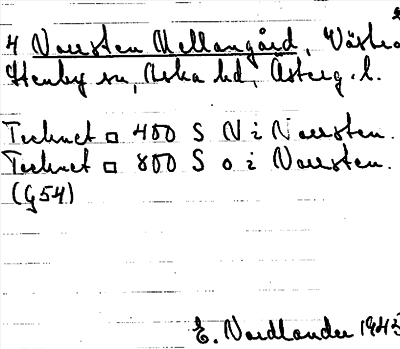 4 Narrsten Mellangård, Västra
Stenby sn, Aska hd, Österg. l.
Tecknet □ 400 S N i Narrsten.
Tecknet □ 800 S o i Narrsten.
(G54)
E. Nordlander 1943